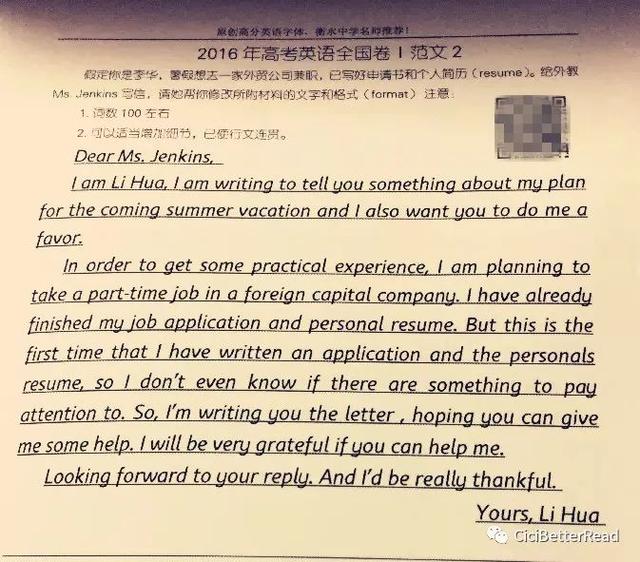 原创高分英语字体，衡水中学名师推荐！
2016年高考英语全国卷I范文2
假定你是李华，暑假想去一家外贸公司兼职，已写好申请书和个人简历（resume）。给外教
Ms. Jenkins 写信，请她帮你修改所附材料的文字和格式（format）注意：
1. 词数100左右
2. 可以适当增加细节，已使行文连贯。
Dear Ms. Jenkins,
I am Li Hua, I am writing to tell you something about my plan
for the coming summer vacation and I also want you to do me a
favor.
In order to get some practical experience, I am planning to
take a part-time job in a foreign capital company. I have already
finished my job application and personal resume. But this is the
first time that I have written an application and the personals
resume, so I don't even know if there are something to pay
attention to. So, I'm writing you the letter , hoping you can give
me some help. I will be very grateful if you can help me.
Looking forward to your reply. And I'd be really thankful.
Yours, Li Hua
CiciBetterRead